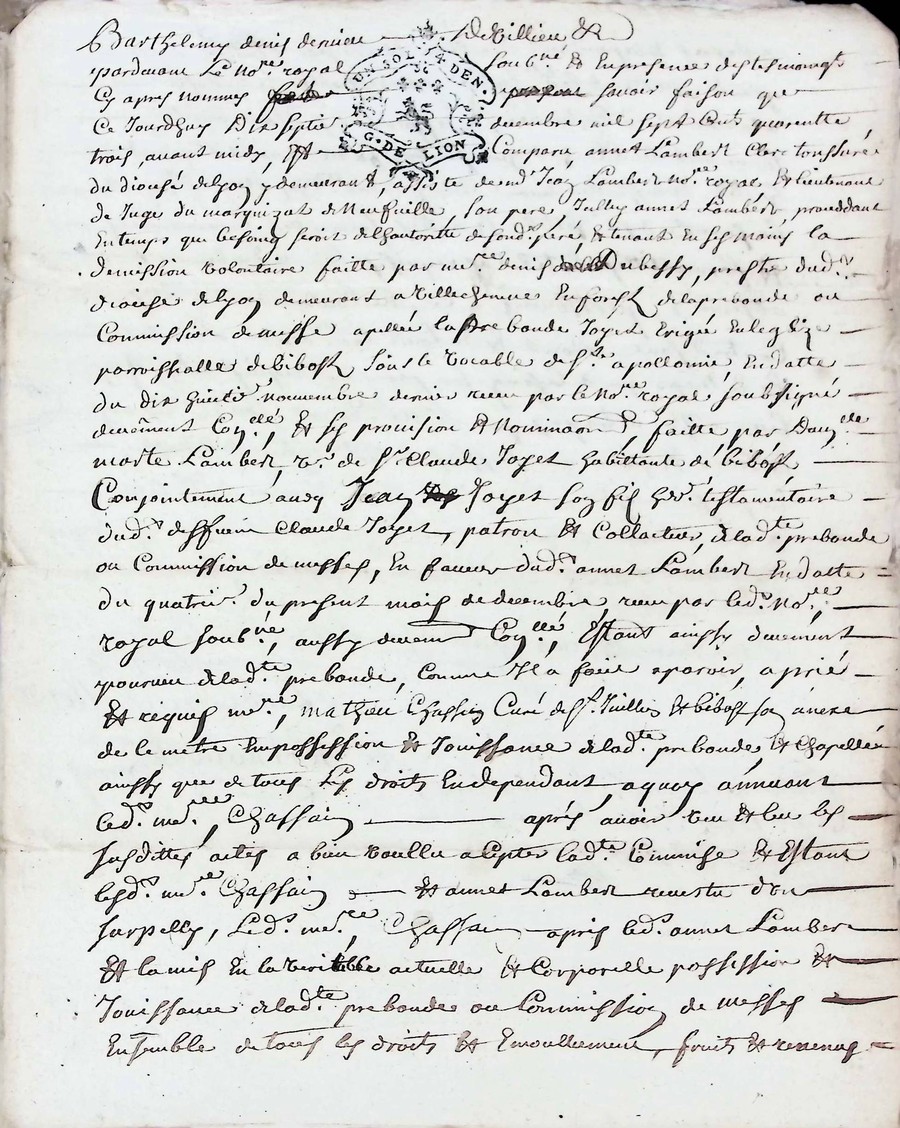 Barthelemy denis derniere Devillieu &
pardevant Le no.re royal soub.né & En presence des tesmoings
Cy apres nommes savoir faison que
Ce Jourdhuy Dix sept.e decembre mil sept Cents quarente
UN SOL 4 DEN.
G. DE LION
trois, avant midy, Est Comparu annet Lambert Clerc tonssuré
du diocesé de Lyon y demeurant, assisté de m.e Jean Lambert No.re royal & lieutenant
de Juge du marquizat de Neufville, son pere, Icelluy annet Lambert, proceddant
En temps que besoing seroit de l'hautorité de sond. peré, & tenant En ses mains la
demission volontaire faitte par m.re denis Dubessy, prestre dud.
diocesé de Lyon demeurant a Villecheneve En forest de la prebande ou
Commission de messe apellée la prebande Joyet Erigée En leglize
parroissialle de bibost sous le vocable de S.te apollonie, En datte
du dix huitie. novembre dernier receu par le No.re royal soubsigné
deuëment Con.llé, & ses provision & Nominaon, faitte par Dam.lle
marte Lambert, v.e de S.r Claude Joyet habittante de bibost
Conjointement avecq Jean Joyet son fils her. testamentaire
dud. deffunt Claude Joyet, patron & Collateur, de lad.te prebande
ou Commission de messes, En faveur dud. annet Lambert En datte
du quatrie. du present mois de decembre, receu par led. No.re
royal soub.né, aussy deuem.t Con.llé, Estant ainssy deuëment
pourveu de lad.te prebande, Comme Il a fait aparoir, a prié
& requis m.re, mathieu Chassain Curé de S.t Jullien & bibost son anexe
de le metre En possession & Jouissance de lad.te prebande & Chapelle
ainssy que de tous Les droits En dependant, a quoy annuant
led. m.re, Chassain après avoir veu & leu les
susdittes actes a bien voullu acepter lad.te Commise & Estant
lesd. m.re Chassain & annet Lambert revestu d'un
surpelly, Led. m.re, Chassain après led. annet Lambert
& la mis En la veritable actuelle & Corporelle possession &
Jouissance de lad.te prebande ou Commission de messes
Ensemble de tous les droits & Emoullement, fruits & revenus